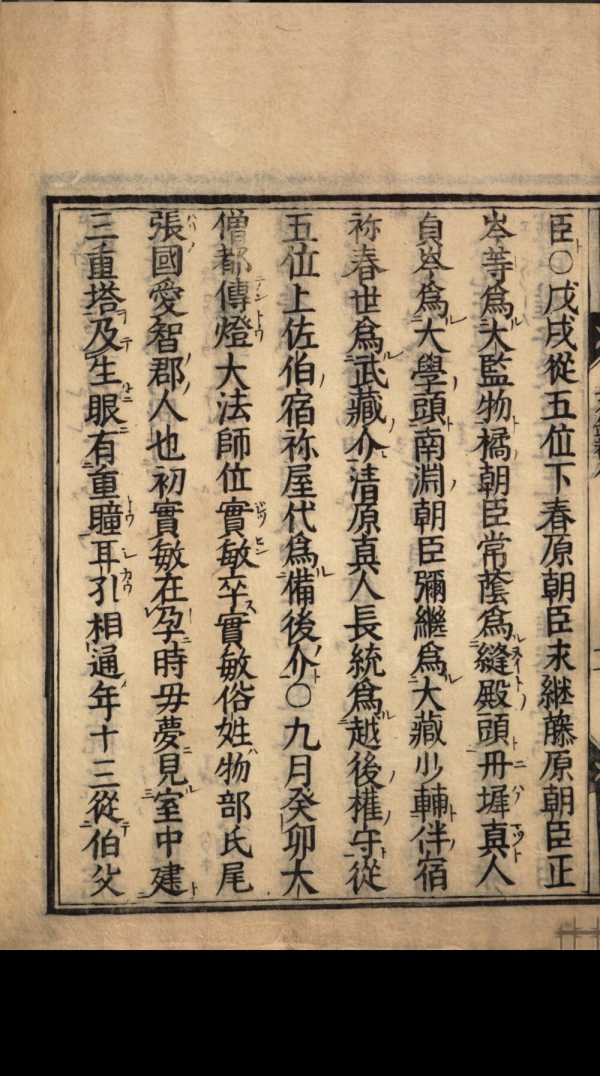 臣○戊戌從五位下春原朝臣末継藤原朝臣正
岑等爲大監物橘朝臣常蔭爲縫殿頭丹墀真人
貞岑爲大學頭南淵朝臣彌繼爲大藏少輔伴宿
祢春世爲武藏介清原真人長統爲越後權守從
五位上佐伯宿祢屋代爲備後介○九月癸卯大
僧都傳燈大法師位實敏卒實敏俗姓物部氏尾
張國愛智郡人也初實敏在孕時毋夢見室中建
三重塔及生眼有重瞳耳孔相通年十三從伯父